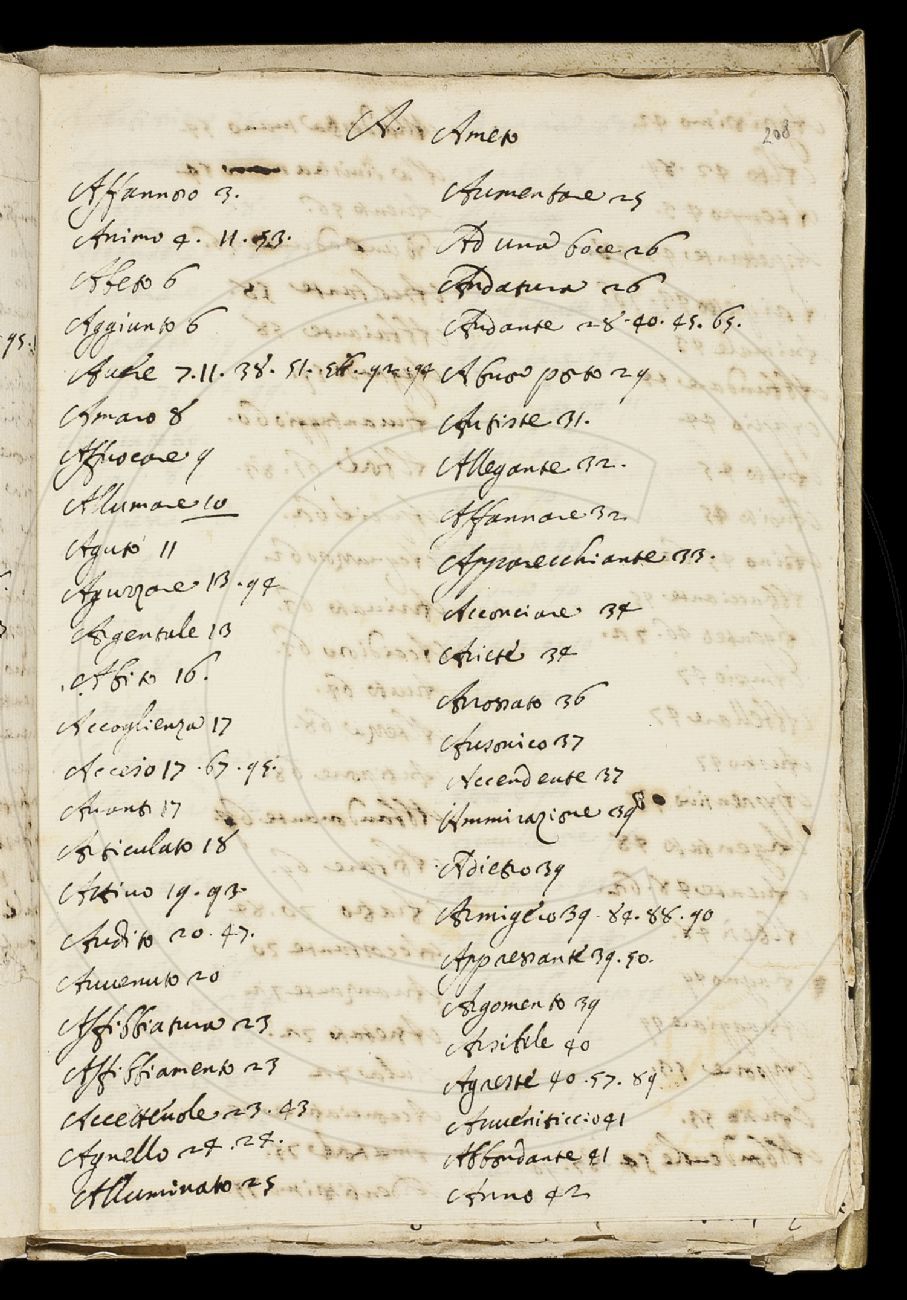 A Ameto
208
Affannoso 3.
Animo 4. 11. 53.
Abeto 6
Aggiunto 6
7. 11. 38. 51. 56. 92. 94
Amaro 8
Affocare 9
Allumare 10
Aguto 11
Aguzzare 13. 94
Argentale 13
Abito 16.
Accoglienza 17
Acceso 17. 67. 95.
Avanti 17
Articulato 18
Attivo 19. 93
Audito 20. 47.
Avvenuto 20
Affibbiatura 23
Affibbiamento 23
Accettevole 23. 43
Agnello 24. 24.
Alluminato 25
Aumentare 25
Ad una boce 26
Andatura 26
Andante 28. 40. 45. 65.
29
Antiste 31.
Allegante 32.
Affannare 32
Apparecchiante 33.
Acconciare 34
Ariete 34
Arrossato 36
Ausonico 37
Accendente 37
Ammirazione 39
Adietro 39
Armigero 39. 84. 88. 90
Appressante 39. 50.
Argomento 39
Arsibile 40
Agreste 40. 57. 89
Avveniticcio 41
Abbondante 41
Anno 42
95.